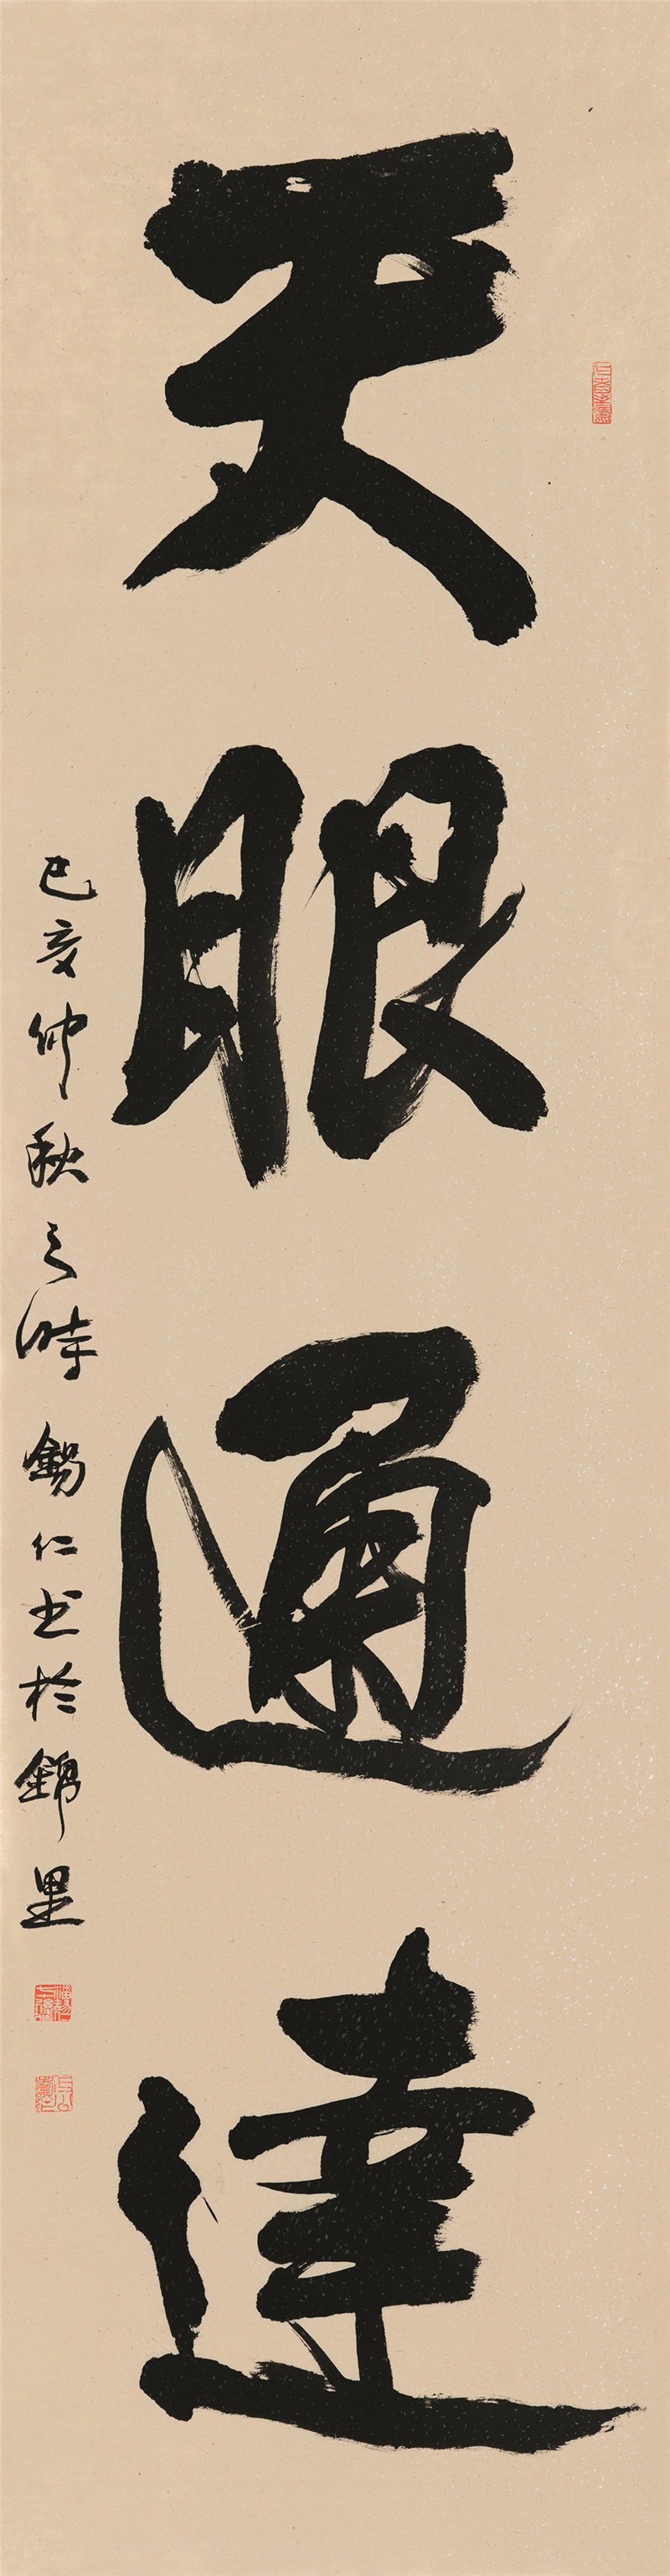 天眼通達
己亥仲秋之時錫仁书於錦里